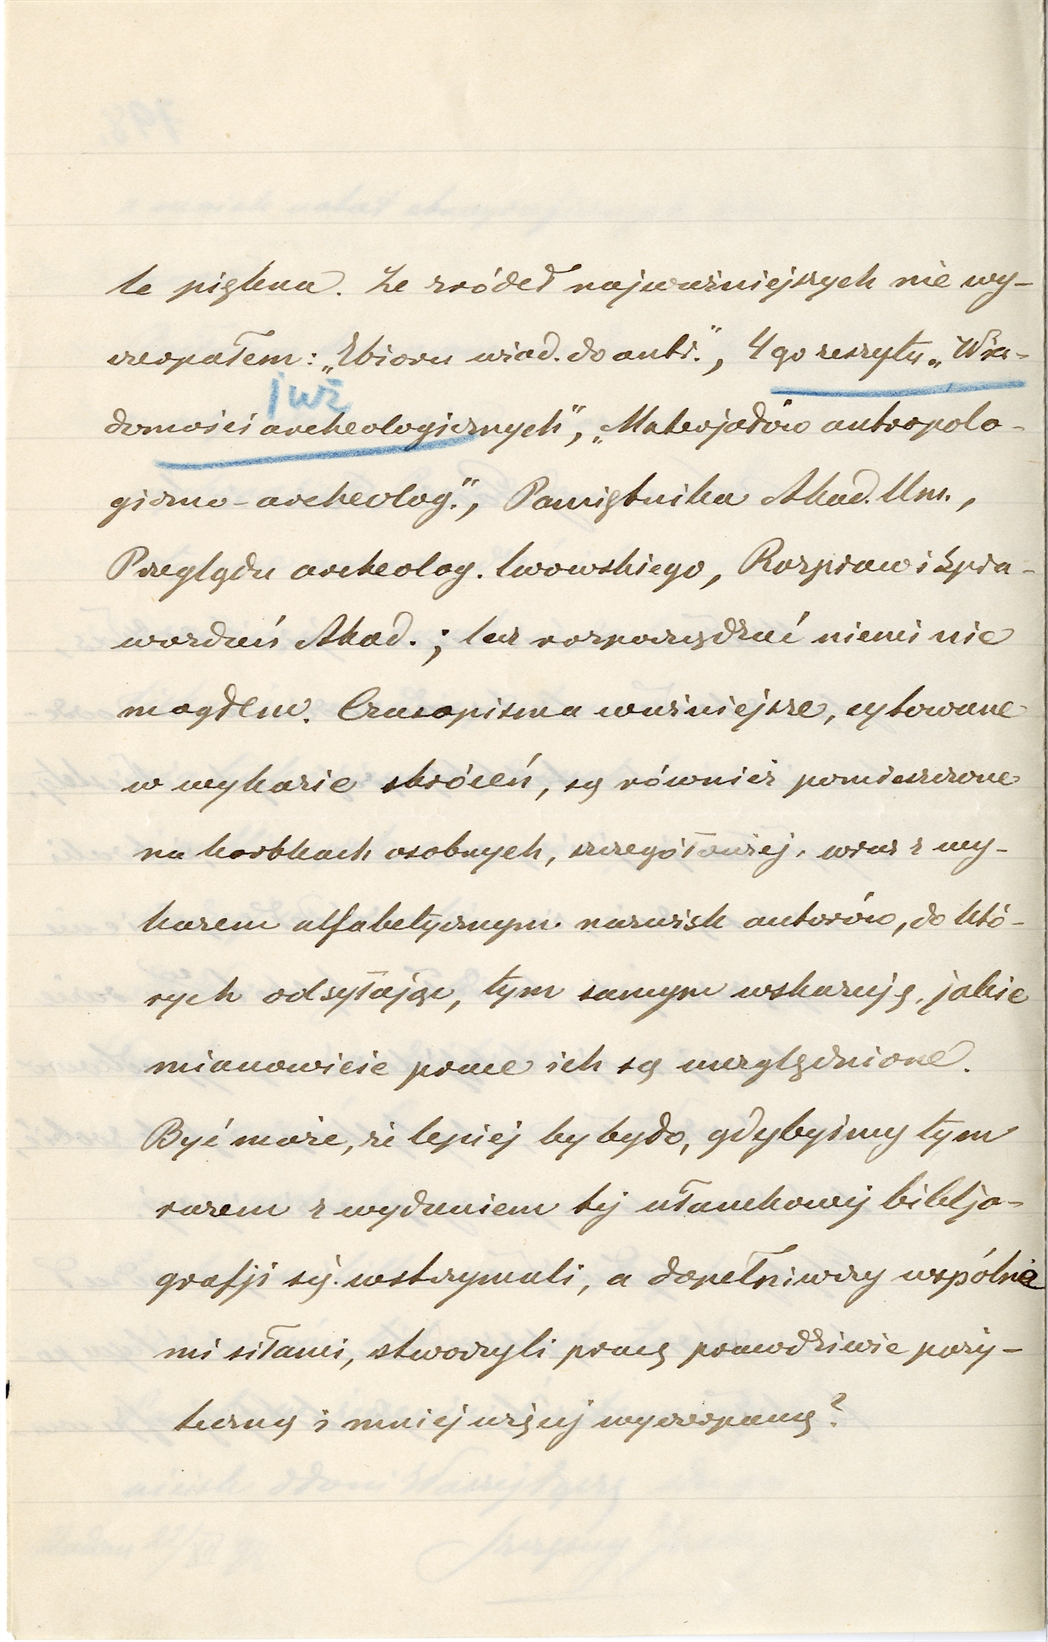 te piękna. Ze zródeł najważniejszych nie wy-
czerpałem: „Zbioru wiad. do antr.", 4go zeszytu „Wia-
już
domości archeologicznych", „Materjałów antropolo-
giczno-archeolog.", Pamiętnika Akad. Um.,
Przeglądu archeolog. lwowskiego, Rozpraw i Spra-
wozdań Akad.; lecz rozporządzać niemi nie
mogłem. Czasopisma ważniejsze, cytowane
w wykazie skróceń, są również pomieszczone
na kartkach osobnych, szczegółowiej, wraz z wy-
kazem alfabetycznym nazwisk autorów, do któ-
rych odsyłając, tym samym wskazuję, jakie
mianowicie prace ich są uwzględnione.
Być może, że lepiej by było, gdybyśmy tym
razem z wydaniem tej ułamkowej bibljo-
grafji się wstrzymali, a dopełniwszy wspólne
mi siłami, stworzyli pracę prawdziwie poży-
teczną i mniej więcej wyczerpaną?